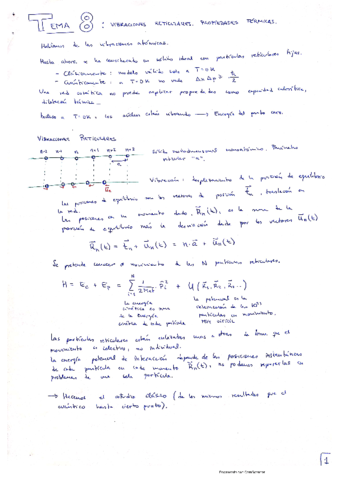 TEMA 8: VIBRACIONES RETICULARES. PROPIEDADES TÉRMICAS.
Hablamos de las vibraciones atómicas.
Hasta ahora se ha considerado un sólido ideal con partículas reticulares fijas.
- Clásicamente: modelo válido solo a T=0K
- Cuánticamente: a T=0K no vale Δx Δp ≥ ħ/2
Una red estática no puede explicar propiedades como capacidad calorífica,
dilatación térmica...
Incluso a T=0K, los núcleos están vibrando → Energía del punto cero.
VIBRACIONES RETICULARES
n-2 n-1 n n+1 n+2 n+3
Sólido unidimensional monoatómico. Parámetro
reticular "a".
Vibración: desplazamiento de la posición de equilibrio
Las posiciones de equilibrio son los vectores de posición
la red.
Las posiciones en un momento dado, R⃗n(t), es la suma de la
posición de equilibrio más la desviación dada por los vectores u⃗n(t)
R⃗n(t) = t⃗n + u⃗n(t) = n·a⃗ + u⃗n(t)
Se pretende conocer el movimiento de las N partículas reticulares.
H = Ec + Ep =
la energía
cinética es suma
de la energía
cinética de cada partícula
la potencial es la
partículas en movimiento.
Las partículas reticulares están enlazadas unas a otras de forma que el
movimiento es colectivo, no individual.
La energía potencial de interacción depende de las posiciones instantáneas
de cada partícula en cada momento R⃗n(t), no podemos representar su
problema de una sola partícula.
→ Hacemos el estudio clásico (da los mismos resultados que el
cuántico hasta cierto punto).
1